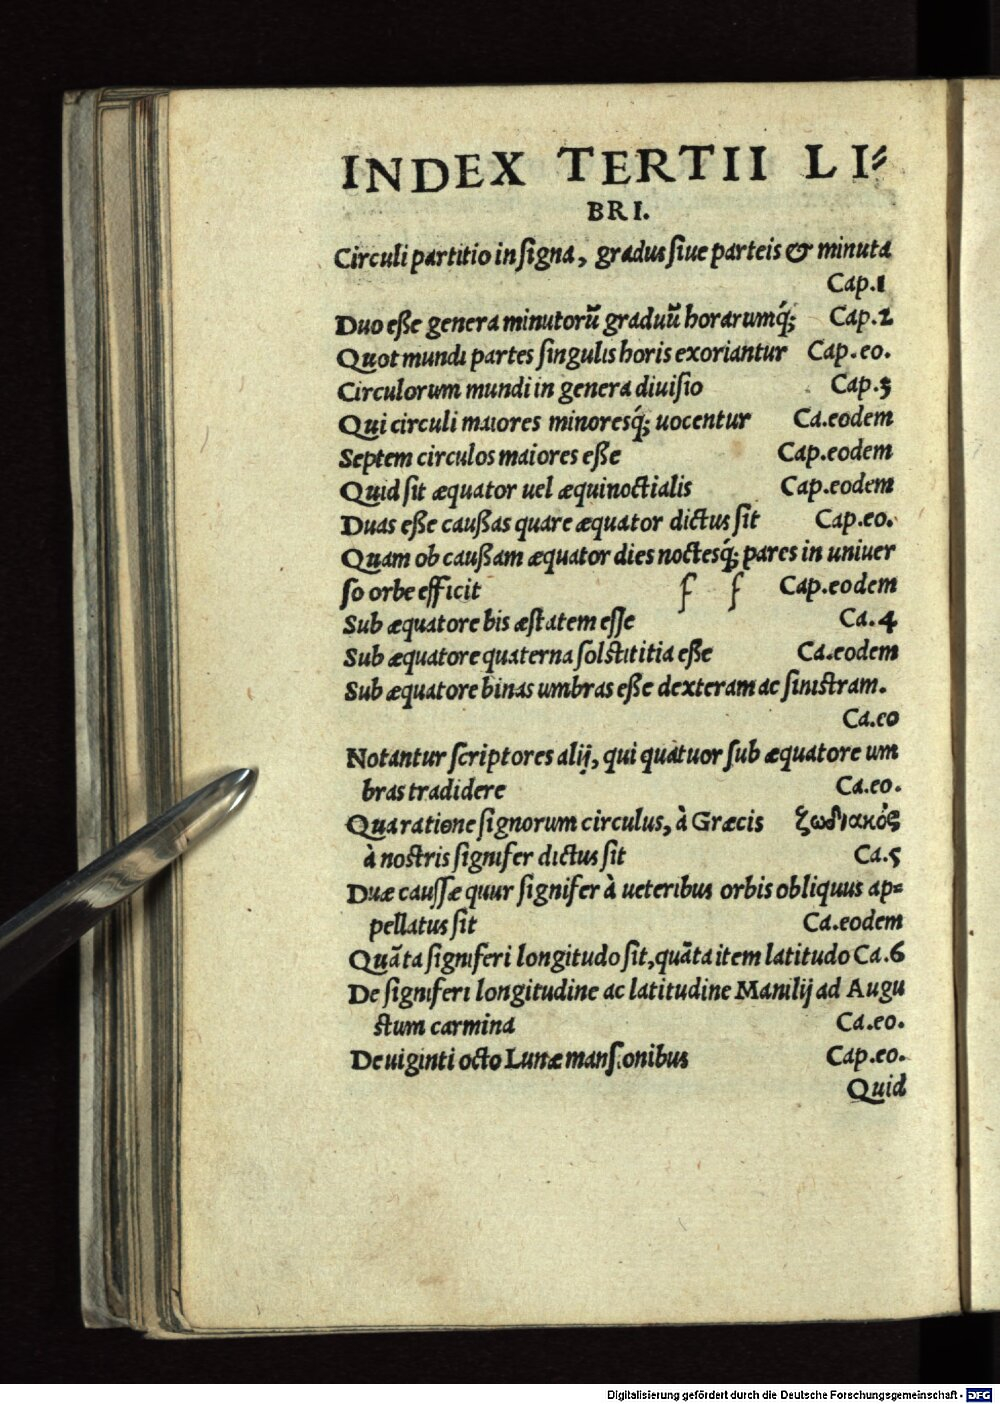 INDEX TERTII LI⸗
BRI.
Circuli partitio in ſigna, gradus ſiue parteis & minuta
Cap.1
Duo eße genera minutorū graduū horarumq́; Cap.2
Quot mundi partes ſingulis horis exoriantur Cap.eo.
Circulorum mundi in genera diuiſio Cap.3
Qui circuli maiores minoresq́; uocentur Ca.eodem
Septem circulos maiores eße Cap.eodem
Quid ſit æquator uel æquinoctialis Cap.eodem
Duas eße caußas quare æquator dictus ſit Cap.eo.
Quam ob caußam æquator dies noctesq́; pares in uniuer
ſo orbe efficit ſ ſ Cap.eodem
Sub æquatore bis æſtatem eſſe Ca.4
Sub æquatore quaterna ſolſtititia eße Ca.eodem
Sub æquatore binas umbras eße dexteram ac ſiniſtram.
Ca.eo
Notantur ſcriptores alij, qui quatuor ſub æquatore um
bras tradidere Ca.eo.
Qua ratione ſignorum circulus, à Græcis ζωδιακός
à noſtris ſignifer dictus ſit Ca.5
Duæ cauſſæ quur ſignifer à ueteribus orbis obliquus ap⸗
pellatus ſit Ca.eodem
Quāta ſigniferi longitudo ſit, quāta item latitudo Ca.6
De ſigniferi longitudine ac latitudine Manilij ad Augu
ſtum carmina Ca.eo.
De uiginti octo Lunæ manſionibus Cap.eo.
Quid
Digitalisierung gefördert durch die Deutsche Forschungsgemeinschaft - DFG